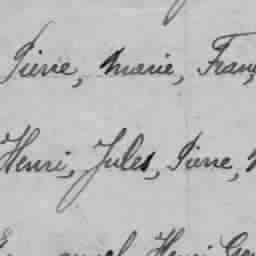 Pierre, Marie, Franç
Henri, Jules, Pierre,
Henri